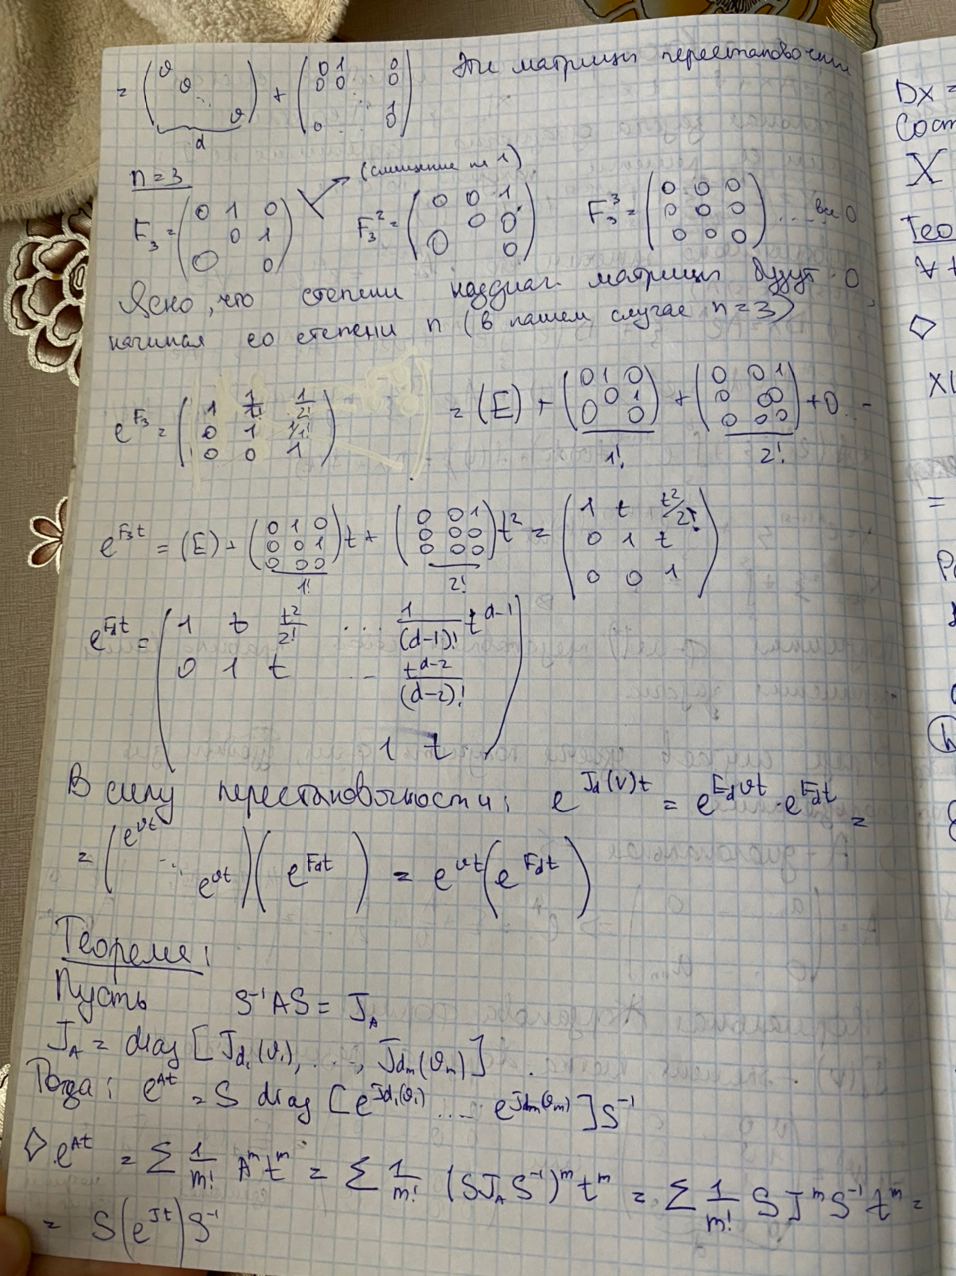 = (ϑ ϑ ⋱ ϑ) + (0 1 0 / 0 0 0 / 1 / 0 0) Эти матрицы перестановочны
d
n=3 (смещение на 1)
F₃ = (0 1 0 / 0 1 / 0 0) F₃² = (0 0 1 / 0 0 / 0 0) F₃³ = (0 0 0 / 0 0 0 / 0 0 0) .... все 0
Ясно, что степени наддиаг. матрицы будут 0,
начиная со степени n (в нашем случае n=3)
e^{F₃} = (1 1/1! 1/2! / 0 1 1/1! / 0 0 1) = (E) + (0 1 0 / 0 0 1 / 0 0)/1! + (0 0 1 / 0 0 0 / 0 0 0)/2! + 0...
e^{F₃t} = (E) + (0 1 0 / 0 0 1 / 0 0 0)/1! t + (0 0 1 / 0 0 0 / 0 0 0)/2! t² = (1 t t²/2! / 0 1 t / 0 0 1)
e^{F_d t} = (1 t t²/2! ... 1/(d-1)! t^{d-1} / 0 1 t ... t^{d-2}/(d-2)! / 1 t)
В силу перестановочности: e^{J_d(V)t} = e^{E_d ϑt} · e^{F_d t} =
= (e^{ϑt} ⋱ e^{ϑt})(e^{F_d t}) = e^{ϑt}(e^{F_d t})
Теорема:
Пусть S⁻¹AS = J_A
J_A = diag [J_{d₁}(ϑ₁), ..., J_{d_m}(ϑ_m)].
Тогда: e^{At} = S diag [e^{J_{d₁}(ϑ₁)} .... e^{J_{d_m}(ϑ_m)}]S⁻¹
◊ e^{At} = Σ 1/m! A^m t^m = Σ 1/m! (SJ_A S⁻¹)^m t^m = Σ 1/m! S J^m S⁻¹ t^m =
= S(e^{Jt})S⁻¹
DX =
X
∀
◊
=